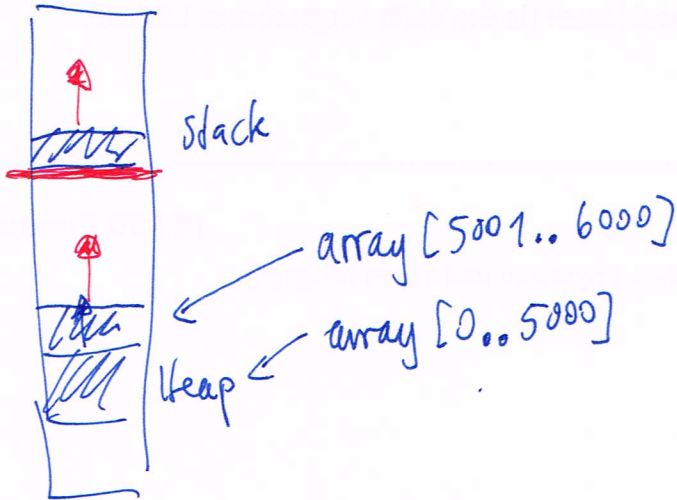 Stack
array [5001.. 6000]
array [0.. 5000]
Heap